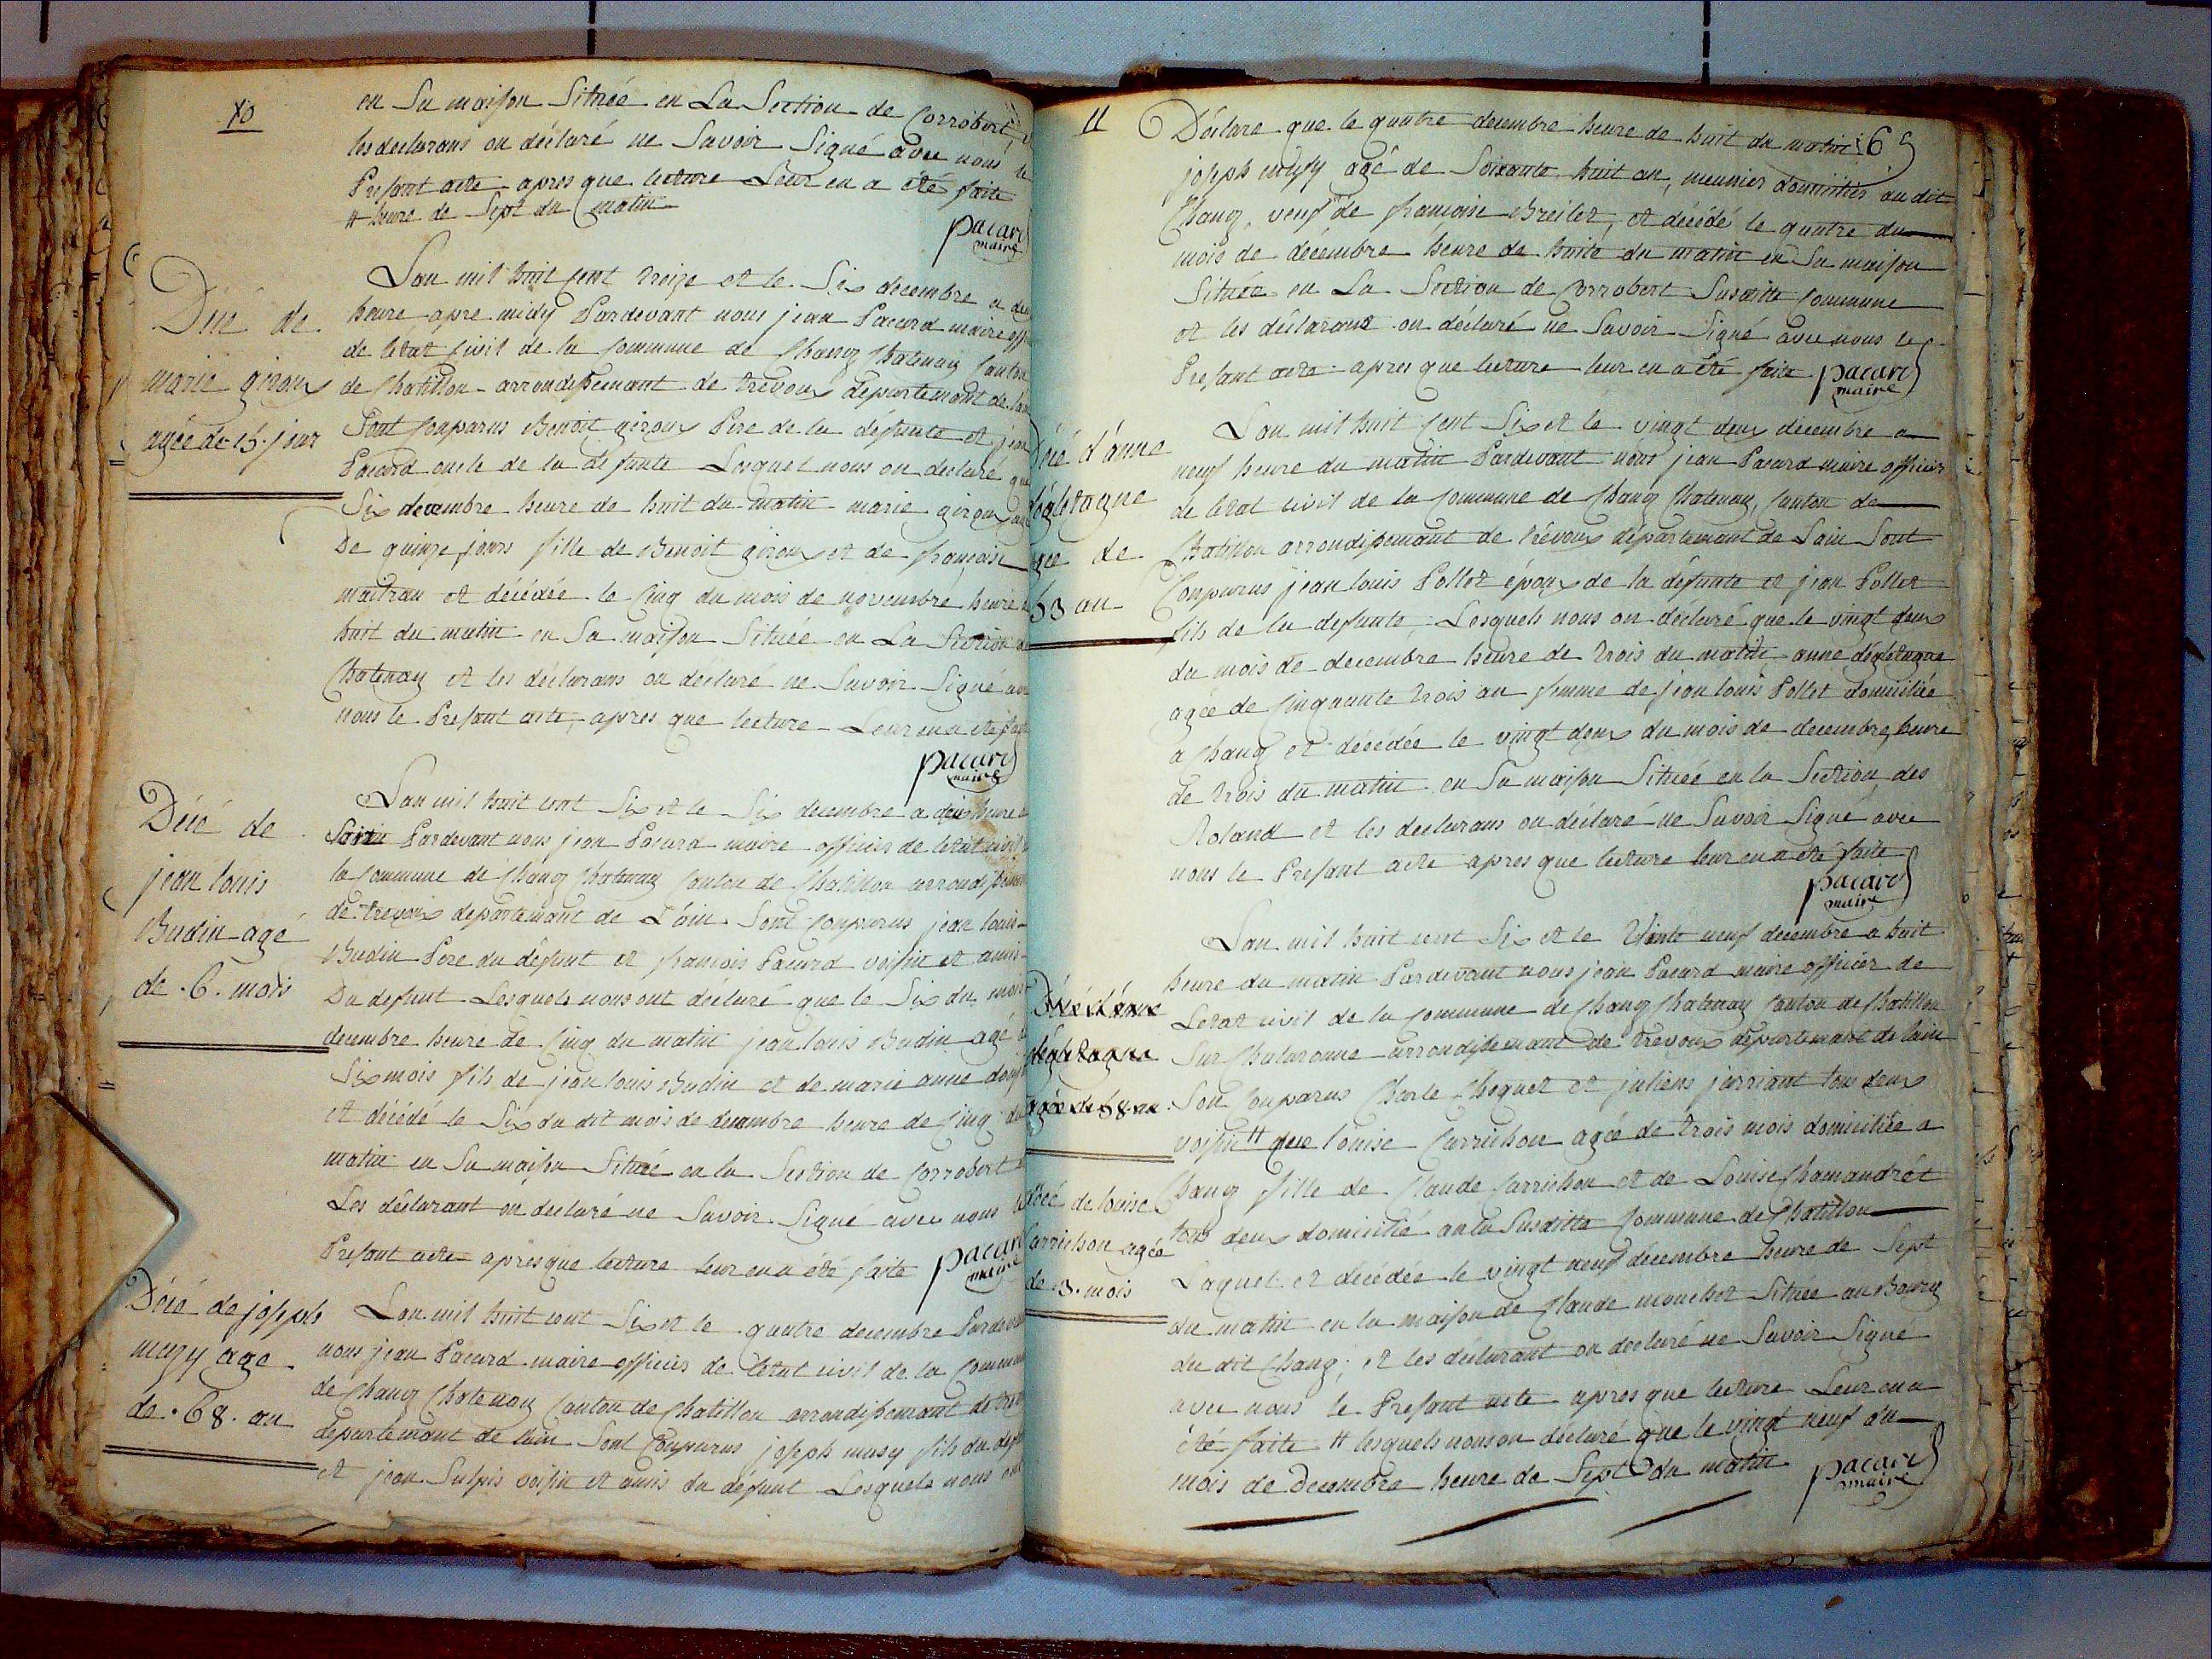 10
en Sa maison Située en La Section de Corrobert,
les declarans on déclaré ne Savoir Signé avec nous le
Present acte apres que lecture Leur en a été faite
# heure de Sept du matin
pacard
maire
Décé de
marie giroux
agée de 15. jour
L'an mil huit cent treize et le Six decembre a deux
heure apre midy Pardevant nous jean Pacard maire off
de letat civil de la Commune de Chanoz Chatenay Canton
de Chatillon arrondissemant de trevoux département de
Sont Conparus Benoit giroux Pere de la défunte et jean
Pacard oncle de la défunte Lesquel nous on declaré que
Six decembre heure de huit du matin marie giroux
De quinze jours fille de Benoit giroux et de françoise
maitrau et décédée le Cinq du mois de novembre heure
huit du matin en Sa maison Située en La Section
Chatenay et les déclarans on déclaré ne Savoir Signé
nous le Present acte, apres que lecture Leur en a été
pacard
maire
Décé de
jean louis
Budin agé
de .6. mois
L'an mil huit cent Six et le Six decembre a heure
Pardevant nous jean Pacard maire officier de letat civil
la Commune de Chanoz Chatenay Canton de Chatillon arrondissemant
de trevoux departemant de L'ain Sont Conparus jean louis
Budin Pere du défunt et françois Pacard voisin et amis
Du defunt Lesquels nous ont déclaré que le Six du mois
décembre heure de Cinq du matin jean louis Budin agé
Six mois fils de jean louis Budin et de marie anne
et décédé le Six du dit mois de decembre heure de Cinq du
matin en Sa maison Située en la Section de Corrobert
Les déclarant on declaré ne Savoir Signé avec nous
Present acte apres que lecture leur en a été faite
pacard
maire
Décé de joseph
muzy age
de .68. an
L'an mil huit cent Six et le quatre decembre Pardevant
nous jean Pacard maire officier de letat civil de la Commune
de Chanoz Chatenay Canton de Chatillon arrondissemant de
departemant de lain Sont Conparus joseph musy fils du
et jean Sulpis voisin et amis du défunt Lesquels nous
11
65
Déclare que le quatre decembre heure de huit du matin
joseph musy agé de Soixante huit an, meunier domicilié au dit
Chanoz, veuf de françoise Breilet, et décédé le quatre du
mois de décembre heure de huite du matin en Sa maison
Située en La Section de Corrobert Susditte Commune
et les déclarant on déclaré ne Savoir Signé avec nous le
Present acte apres que lecture leur en a été faite
pacard
maire
Décé d'anne
égletagne
agée de
53 an
L'an mil huit cent Six et le vingt deux decembre a
neuf heure du matin Pardevant nous jean Pacard maire officier
de letat civil de la Commune de Chanoz Chatenay, Canton de
Chatillon arrondissemant de trévoux départemant de Lain Sont
Conparus jean louis Pollet époux de la défunte et jean Pollet
fils de la defunte, Lesquels nous on déclaré que le vingt deux
du mois de decembre heure de trois du matin anne dégletagne
agée de Cinquante trois an femme de jean louis Pollet domiciliée
a Chanoz et décédée le vingt deux du mois de decembre, heure
de trois du matin en Sa maison Située en la Section des
Roland et les declarans on déclaré ne Savoir Signé avec
nous le Present acte apres que lecture leur en a été faite
pacard
maire
Décé d'anne
égletagne
Décé de louise
Carrichon agée
de 3. mois
L'an mil huit cent Six et le vinte neuf decembre a huit
heure du matin Pardevant nous jean Pacard maire officier de
Letat civil de la Commune de Chanoz Chatenay Canton de Chatillon
Sur Chalaronne arrondissemant de trevoux départemant de lain
Son Conparus Charle Choquet et juliens jarriant tou deux
voisin # que louise Carrichon agée de trois mois domiciliée a
Chanoz fille de Claude Carrichon et de Louise Chamandrét
tou deux domicilié an la Susditte Commune de Chatillon
Laquel et décédée le vingt neuf décembre heure de Sept
du matin en la maison de Claude monchet Située au Bourg
du dit Chanoz, et les déclarant on declaré ne Savoir Signé
avec nous le Present acte apres que lecture Leur en a
été faite # lesquels nous on déclaré que le vingt neuf du
mois de Decembre heure de Sept du matin
pacard
maire